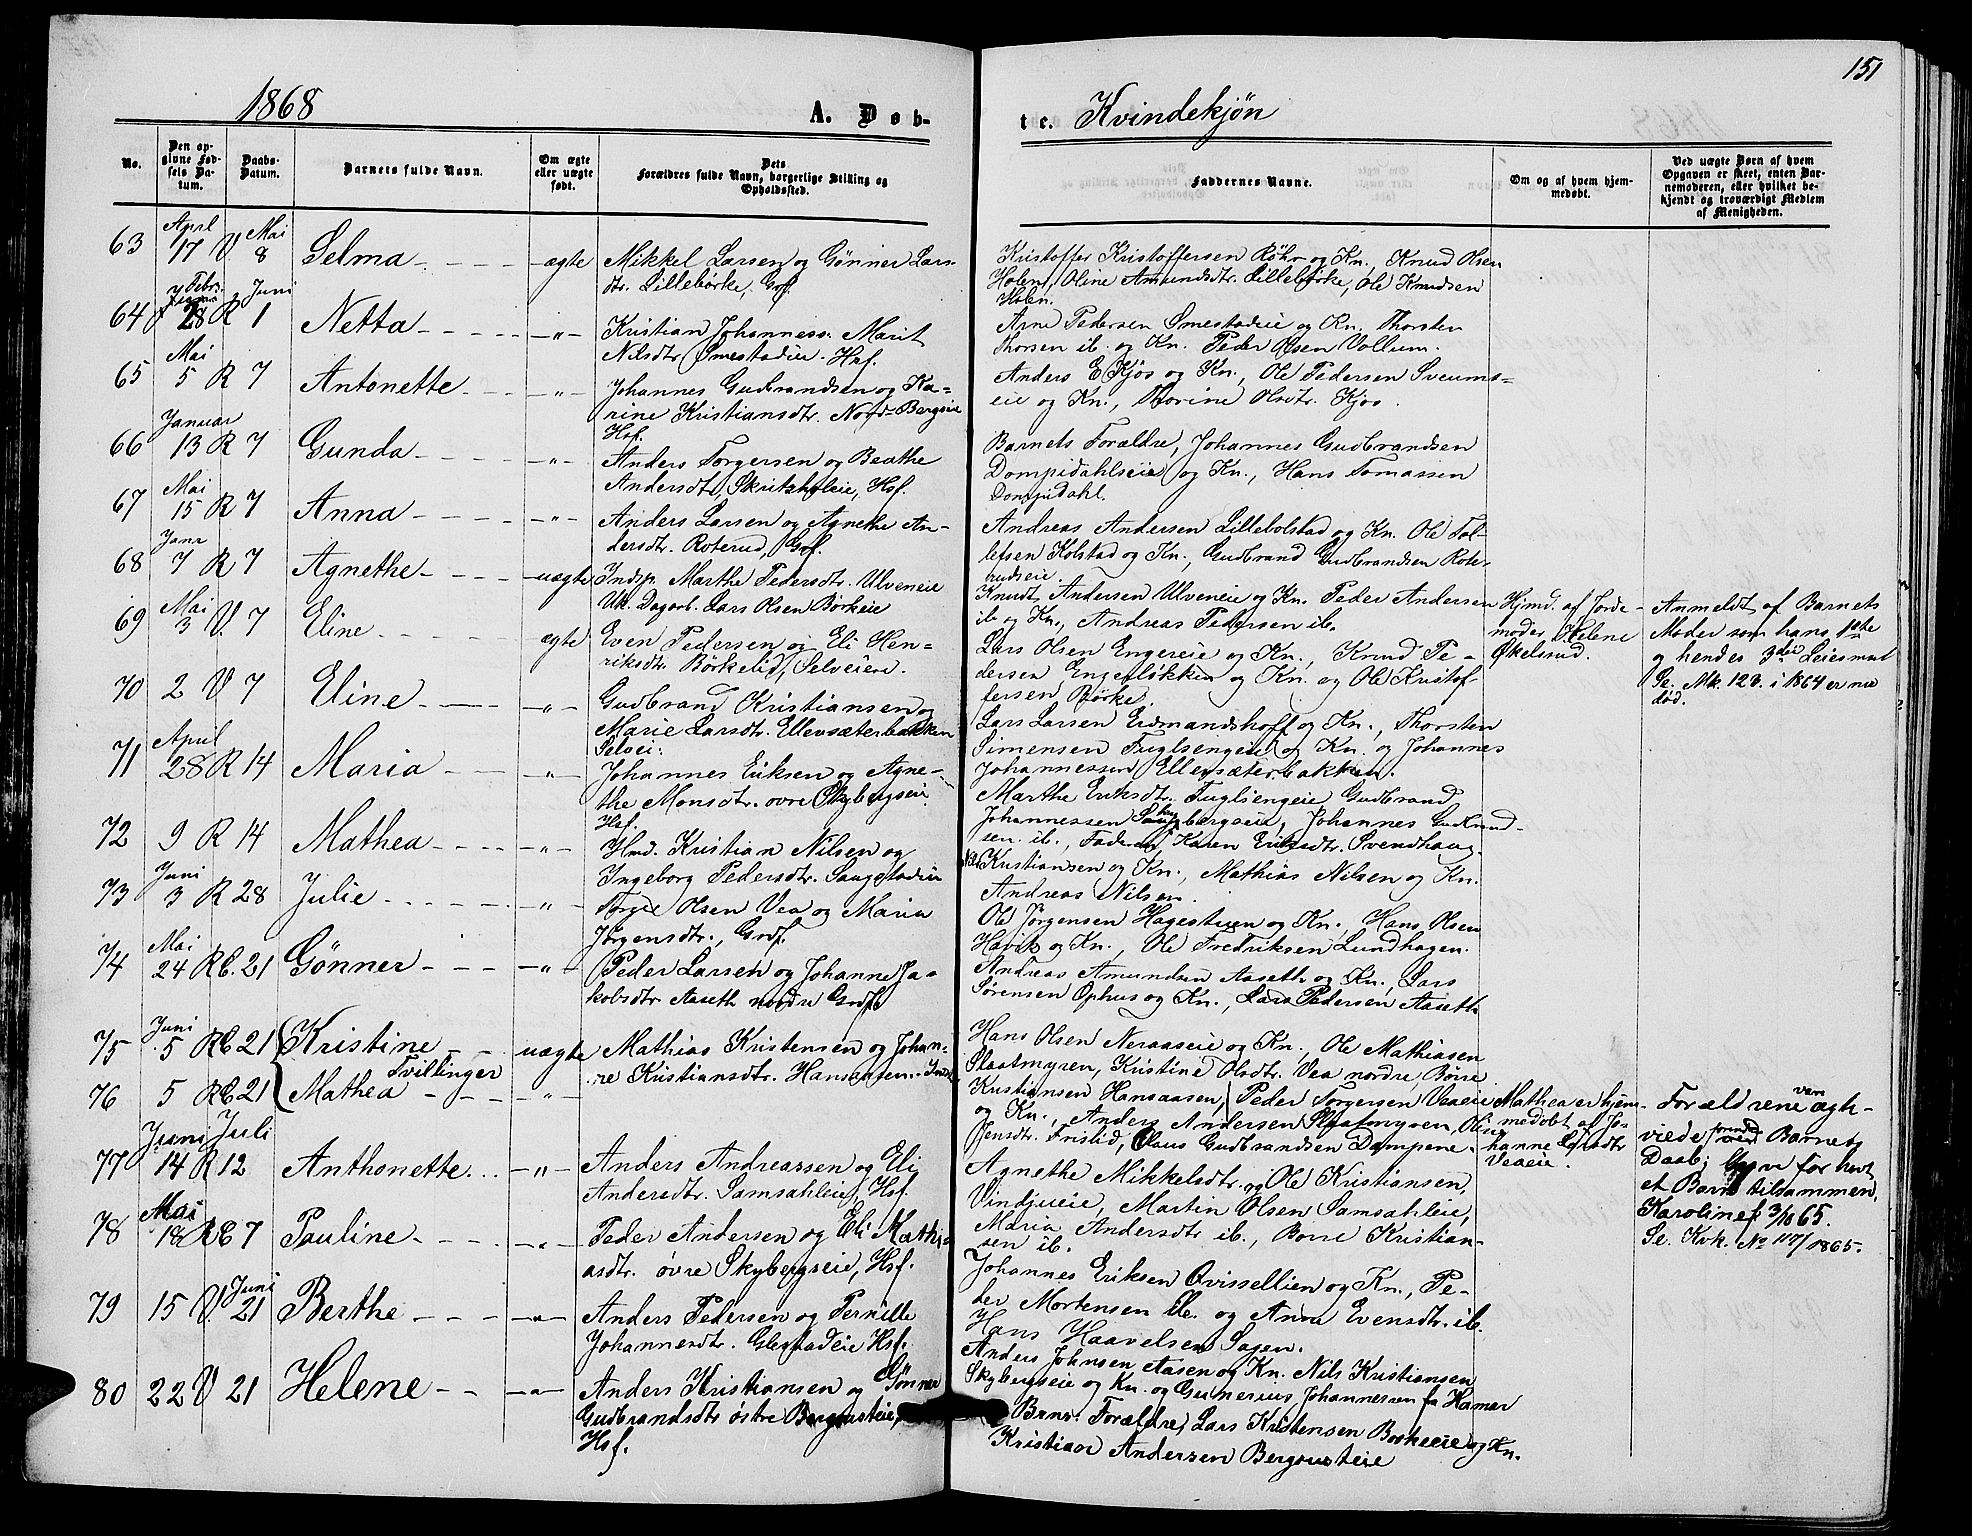 151
1868
A. Døb-
te. Kvindekjøn
No.
Den op-
givne Fød-
sels Da-
tum.
Daabs-
Datum.
Barnets fulde Navn.
Om ægte
eller uægte
født.
Dets
Forældres fulde Navn, borgerlige Stilling og
Opholdssted.
Faddernes Navne.
Om og af hvem hjem-
medøbt.
Ved uægte Børn af hvem
Opgaven er skeet, enten Bar-
nemoderen, eller hvilket be-
kjendt og troværdigt Medlem
af Menigheden.
63 April 17 V. Mai 8 Selma ægte
Mikkel Larsen og Gønner Lars-
dtr. Lillebørke, Grf.
Kristoffer Kristoffersen Røhr og Kn., Knud Olsen
Holen, Oline Amundsdtr. Lillebørke, Ole Knudsen
Holen.
64 Febr. 28 R Juni 1 Netta -"-
Kristian Johanness. Marit
Nilsdtr Smestadeie. Hsf.
Arne Pedersen Smestadeie og Kn. Thorsten
Thorsen ib. og Kn. Peder Olsen Vollum.
65 Mai 5 R 7 Antonette -"-
Johannes Gudbrandsen og Ka-
rine Kristiansdtr. Nord-Bergseie
Hsf.
Anders E Kjos og Kn., Ole Pedersen Sveums-
eie og Kn., Olsdtr. Kjos.
66 Januar 13 R 7 Gunda -"-
Anders Torgersen og Beathe
Andersdtr, Hsf.
Barnets Forældre, Johannes Gudbrandsen
Dompidahlseie og Kn., Hans Tomassen
Dompidahl.
67 Mai 15 R 7 Anna -"-
Anders Larsen og Agnethe An-
dersdtr. Roterud, Grf.
Andreas Andersen Lillebolstad og Kn. Ole Tol-
lefsen Kolstad og Kn., Gudbrand Gudbrandsen Rote-
rudseie.
68 Janr 7 R 7 Agnethe uægte
Indsp. Marthe Pedersdtr. Ulveneie
Uk. Dagarb. Lars Olsen Børkeie
Knudt Andersen Ulveneie og Kn. Peder Andersen
ib og Kn., Andreas Pedersen ib.
Hjmd. af Jorde-
moder Helene
Økelsrud.
Anmeldt af Barnets
Moder som hans 1ste
og hendes 3die Leiesmaal
Se. Mk. 123. i 1864 er nu
død.
69 Mai 3 V. 7 Eline ægte
Even Pedersen og Eli Hen-
riksdtr. Børkelid, Selveier.
Lars Olsen Engereie og Kn., Knud Pe-
dersen Engeløkken og Kn. og Ole Kristof-
fersen Børke.
70 2 V 7 Eline -"-
Gudbrand Kristiansen og
Marie Larsdtr. Ellevsæterbakken
Selvei:
Lars Larsen Erdmandshoff og Kn., Thorsten
Simensen Fuglsengeie og Kn. og Johannes
Johannessen Ellevsæterbakken.
71 April 28 R 14 Maria -"-
Johannes Eriksen og Agne-
the Monsdtr. øvre Skybergseie.
Hsf.
Marthe Eriksdtr. Fuglsengeie Gudbrand
Johannessen bergseie, Johannes Gudbrand-
sen. ib., Faderen, Karen Eriksdtr. Svendhaug.
72 9 R 14 Mathea -"-
Hmd. Kristian Nilsen og
Ingeborg Pedersdtr. Saugstadeie
Nils Kristiansen og Kn., Mathias Nilsen og Kn.
Andreas Nilsen.
73 Juni 3 R 28 Julie -"-
Torger Olsen Vea og Maria
Jørgensdtr., Grdf.
Ole Jørgensen Hagestuen og Kn., Hans Olsen
Havik og Kn., Ole Fredriksen Lundhagen.
74 Mai 24 RC. 21 Gønner -"-
Peder Larsen og Johanne Ja-
kobsdtr. Aaseth nordre Grdf.
Andreas Amundsen Aaseth og Kn., Lars
Sørensen Ophus og Kn., Lars Pedersen Aaseth
75 Juni 5 RC 21 Kristine uægte
Tvillinger
76 5 RC 21 Mathea -"-
Mathias Kristensen og Johan-
ne Kristiansdtr. Hansaasen.
Hans Olsen Neraaseie og Kn., Ole Mathiasen
Slaatmyren, Kristine Olsdtr. Vea nordre, Børre
Kristiansen Hansaasen, Peder Torgersen Veaeie
og Kn., Anders Andersen Slaatmyren, Oline
Jensdtr. Frislid, Claus Gudbrandsen Dampene.
Mathea er hjem-
medøbt af Jo-
hanne Larsdtr
Veaeie.
Forældrene vare ægte-
viede forinden Barnets
Daab; Gave før havt
et Barn tilsammen,
Karoline f 3/10 65.
Se. Kvk. No 117/1865.
77 Juni 14 R Juli 12 Anthonette -"-
Anders Andreassen og Eli
Andersdtr. Samsahleie, Hsf.
Agnethe Mikkelsdtr. og Ole Kristiansen,
Vindjueie, Martin Olsen Samsahleie,
Maria Andersdtr ib., Børre Kristian-
sen ib.
78 Mai 18 RC 7 Pauline -"-
Peder Andersen og Eli Mathi-
asdtr. øvre Skybergseie, Hsf.
Johannes Eriksen Qvissellien og Kn., Pe-
der Mortensen ib. og Anna Evensdtr. ib.
Hans Haavelsen Sagen.
79 15 V. Juni 21 Berthe -"-
Anders Pedersen og Pernille
Johannesdtr. Glestadeie Hsf.
Anders Johnsen Aasen og Kn. Nils Kristiansen
Skybergseie og Kn. og Gunerius Johannessen fa Hamar
80 22 V 21 Helene -"-
Anders Kristiansen og Gønner
Gudbrandsdtr østre Bergousteie,
Hsf.
Brns. Forældre, Lars Kristensen Børkeeie og Kn.
Kristian Andersen Bergousteie